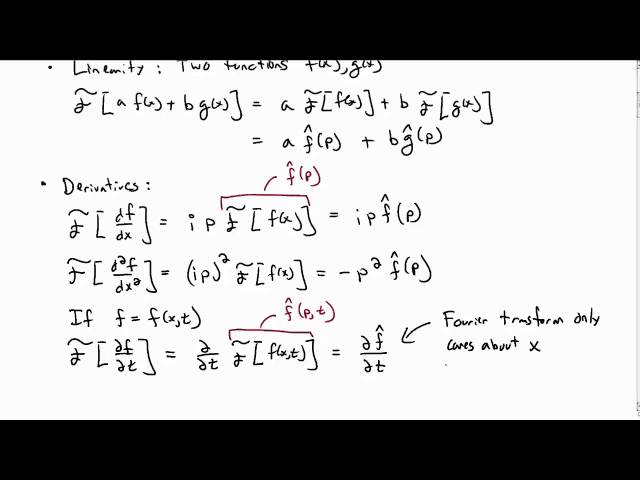 • Linearity: Two functions f(x), g(x)
ℱ[a f(x) + b g(x)] = a ℱ[f(x)] + b ℱ[g(x)]
= a f̂(p) + b ĝ(p)
• Derivatives:
f̂(p)
ℱ[df/dx] = i p ℱ[f(x)] = i p f̂(p)
ℱ[d²f/dx²] = (ip)² ℱ[f(x)] = -p² f̂(p)
If f = f(x,t)
f̂(p,t)
ℱ[∂f/∂t] = ∂/∂t ℱ[f(x,t)] = ∂f̂/∂t
Fourier transform only
cares about x